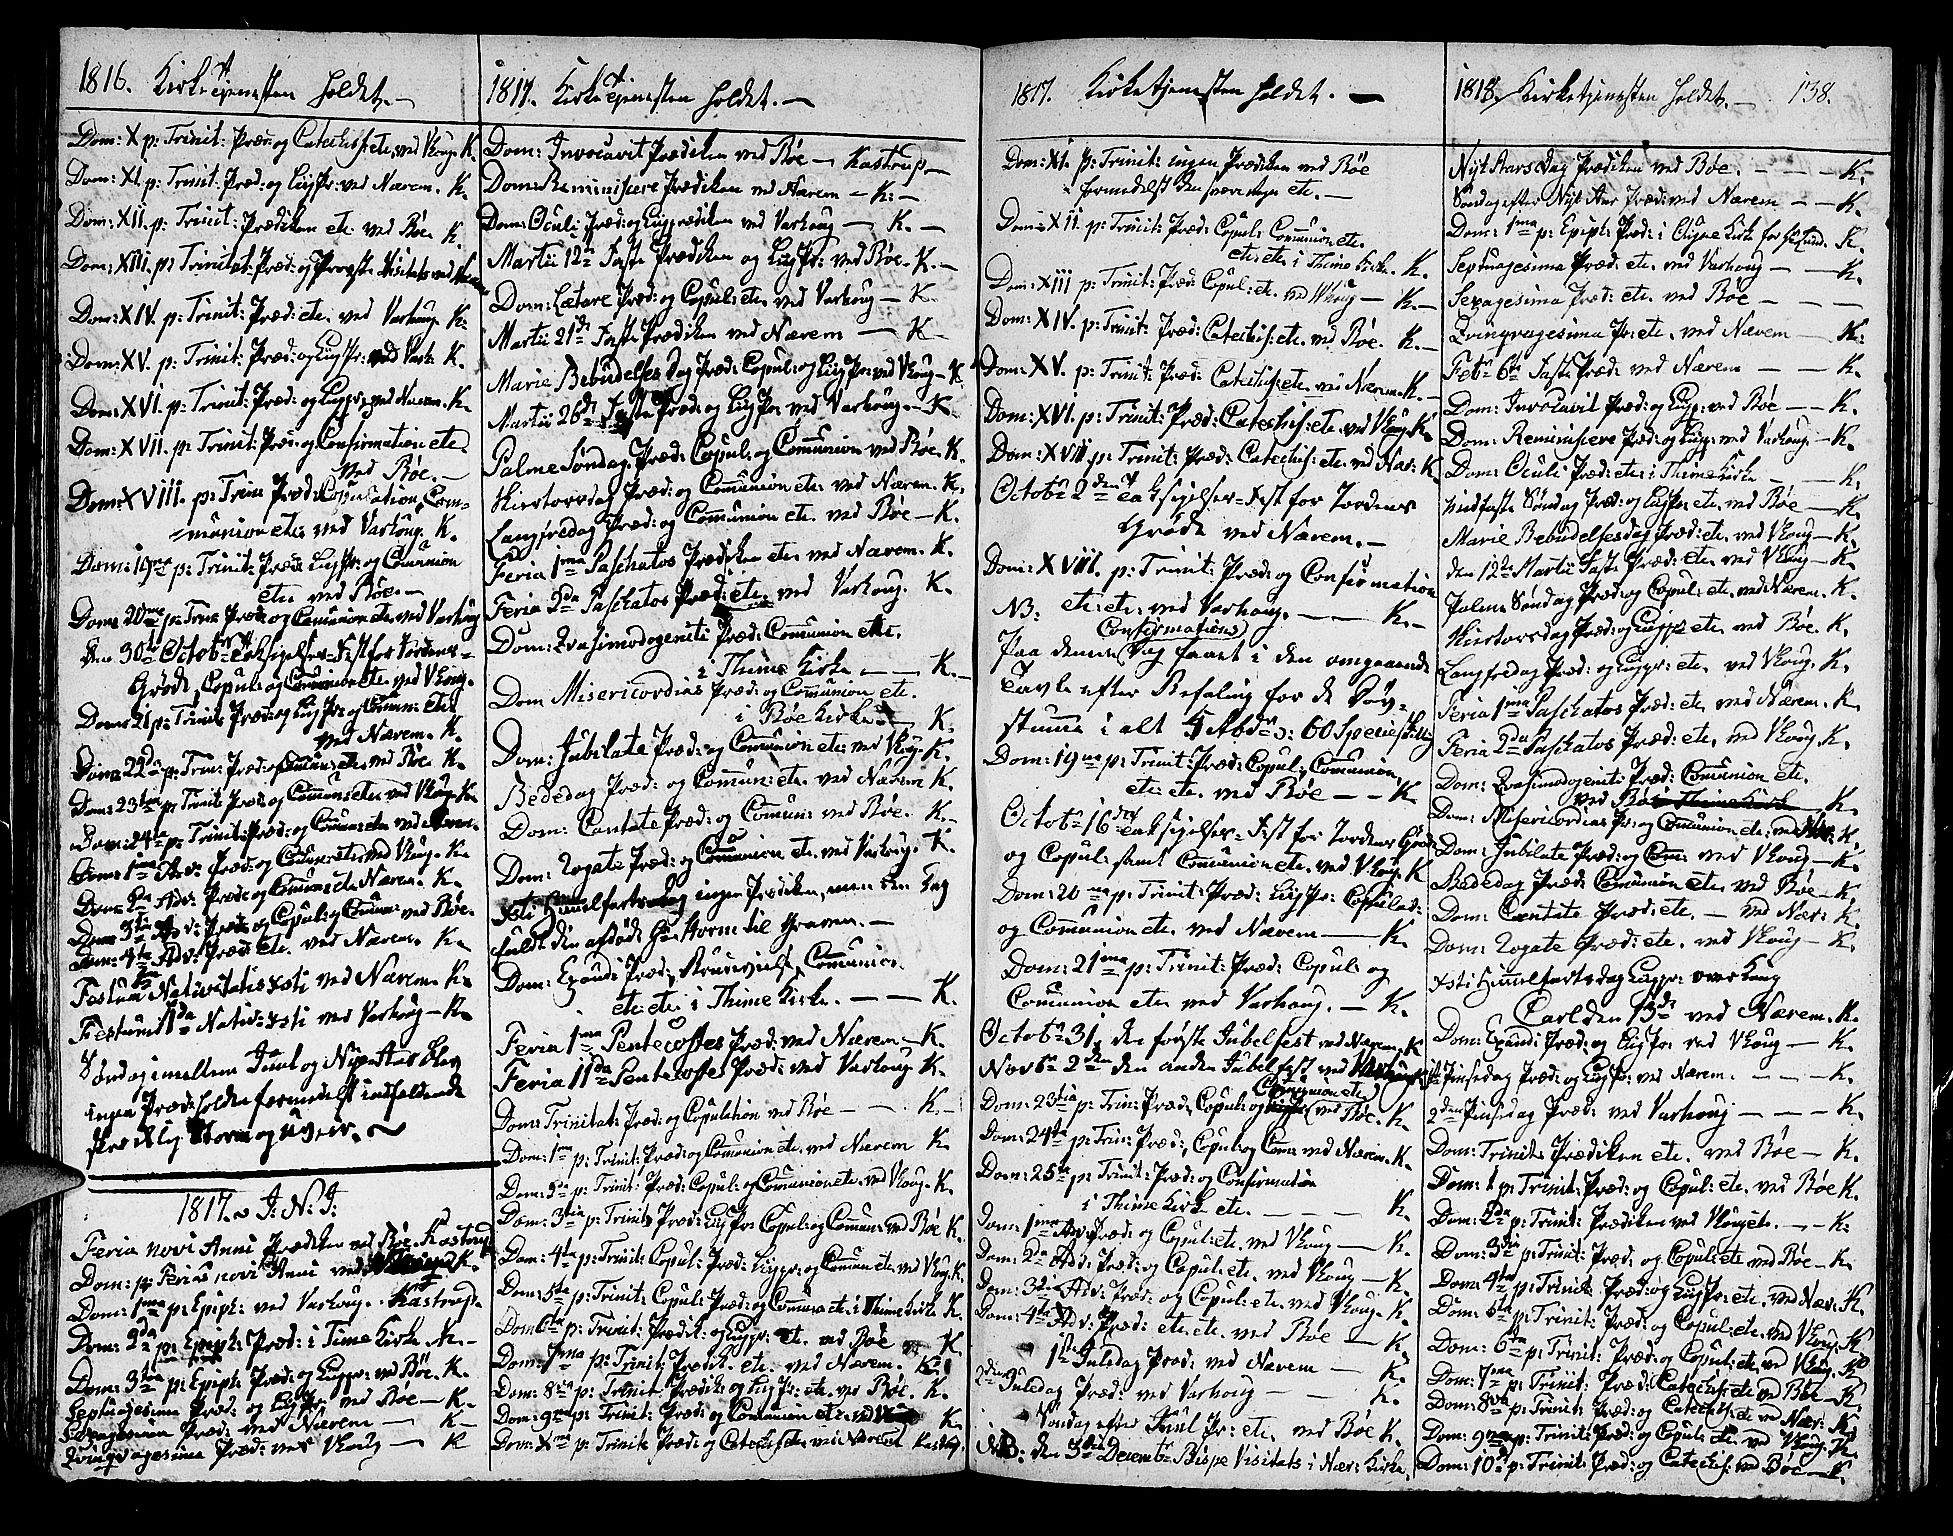 1816. Kirketjenesten holdet.
Dom: X p: Trinit: Præd: og Catechis: etc. ved Vhoug. K.
Dom: XI. p: Trinit: Præd: og Liigpr: ved Nærem. K.
Dom: XII. p: Trinit: Prædiken etc. ved Bøe. K.
Dom: XIII. p: Trinitat: Præd: og Provste Visitats ved
Dom: XIV. p: Trinit: Præd: etc. ved Varhoug. K.
Dom: XV. p: Trinit: Præd: og Liigpr: ved Varh. K.
Dom: XVI. p: Trinit: Præd: og Liigpr: ved Nærem. K.
Dom: XVII. p: Trinit: Præd: og Confirmation etc
ved Bøe.
Dom: XVIII. p: Trin: Præd: Copulation, Com-
munion etc. ved Varhoug. K.
Dom: 19na p: Trinit: Præd: Liigpr: og Comunion
etc. ved Bøe.
Dom: 20me p: Trin: Præd: og Comunion etc. ved Varhoug
Den 30te Octobr Taksigelses-Fest for Jordens-
Grøde, Copul: og Comunion etc. ved Vhoug.
Dom: 21 p: Trinit: Præd: og Liigpr: og Comun: etc.
ved Nærem. K.
Dom: 22da p: Trin: Præd: og Comun: etc. ved Bøe K.
Dom: 23tia p: Trinit: Præd: og Comun: etc. ved Vhoug. K.
Dom: 24ta p: Trinit: Præd: og Comun: etc. ved Nærem.
Dom: 1ma Adv: Præd: og Comun: etc. ved Vhoug. K.
Dom: 2da Adv: Præd: og Comun: etc. Nærem. K.
Dom: 3tia Adv: Præd: Copul: og Comun: ved Bøe.
Dom: 4ta Adv: Præd: etc. ved Nærem. K.
Festum Nativitatis Xsti ved Nærem. K.
Festum IIda Nativ: Xsti ved Varhoug. K.
Søndag imellem Juul og Nyeaar blev
ingen Præd: holden formedelst indfaldende
skrekkelig Storm og Uveir.
1817. J: N: J:
Feria novi Anni Prædiken ved Bøe. Kastrup
Dom: p: Ferias novi Anni ved K.
Dom: 1ma p: Epiph: ved Varhoug. Kastrup.
Dom: 2da p: Epiph: Præd: i Time Kirke K.
Dom: 3tia p: Epiph: Præd: og Liigpr: ved Bøe. K.
Septuagesima Præd: og Liigpr: ved Bøe K.
Sexagesima Præd: ved Nærem K
Qvinqvagesima Præd: ved Vhoug K
1817. Kirketjenesten holdet.
Dom: Invocavit Prædiken ved Bøe Kastrup
Dom: Reminiscere Prædiken ved Nærem K.
Dom: Oculi Præd: og Liigprædiken ved Varhoug K.
Martii 12te Faste Prædiken og Liigpr: ved Bøe. K.
Dom: Lætare Præd: og Copul: etc. ved Varhoug K.
Martii 21de Faste Prædiken ved Nærem K
Mariæ Bebudelses Dag Præd: Copul: og Liigpr: ved Vhoug K.
Martii 26de Faste Præd: og Liigpr: ved Varhoug. K
Palme Søndag. Præd: Copul: og Comunion ved Bøe. K.
Skiertorsdag Præd: og Comunion etc. ved Nærem. K.
Langfredag Præd: og Comunion etc. ved Bøe K.
Feria 1ma Paschatos Prædiken etc. ved Nærem. K.
Feria 2da Paschatos Præd: etc. ved Varhoug. K.
Dom: Qvasimodogeniti Præd: Comunion etc.
i Thime Kirke K.
Dom: Misericordias Præd: og Comunion etc.
i Bøe Kirke K.
Dom: Jubilate Præd: og Comunion etc: ved Vhoug. K.
Bededag Præd: og Comun: etc. ved Nærem K.
Dom: Cantate Præd: og Comun: ved Bøe. K.
Dom: Rogate Præd: og Comunion etc. ved Varhoug. K.
Xsti Himmelfartsdag ingen Prædiken, men den Dag
fuldt den afdøde Hr Storm til Graven.
Dom: Exaudi Præd: Brudevielse, Comunion
etc etc. i Thime Kirke. K.
Feria 1ma Pentecostes Præd: ved Nærem K.
Feria IIda Pentecostes Præd: ved Varhoug K.
Dom: Trinitat: Præd: og Copulation ved Bøe K.
Dom: 1ma p: Trinit: Præd: og Comunion etc. ved Nærem K.
Dom: 2da p: Trinit: Præd: Copul: og Comunion etc. ved Vhoug. K.
Dom: 3tia p: Trinit: Præd: Liigpr: Copul: og Comun: ved Bøe K.
Dom: 4ta p: Trinit: Copul: Præd: Liigpr: og Comun etc. ved Vhoug. K.
Dom: 5ta p: Trinit: Copul: Præd: og Comun etc: i Thime Kirke K.
Dom: 6ta p: Trinit: Prædik: og Liigpr: etc. ved Bøe K.
Dom: 7ma p: Trinit: Prædik: etc. ved Nærem. K.
Dom: 8va p: Trinit: Prædik: og Liigpr: etc. ved Bøe. K.
Dom: 9na p: Trinit: Præd: og Comunion etc. ved K.
Dom: Xma p: Trinit: Præd: og Catechis: etc. ved Nærem Kastrup.
1817. Kirketjenesten holdet.
Dom: XI. p: Trinit: ingen Prædiken ved Bøe
formedelst Den svere Regn etc.
Dom: XII. p: Trinit: Præd: Copul: Comunion etc.
etc. etc. i Thime Kirke. K.
Dom: XIII p: Trinit: Præd: Copul: etc. ved Vhoug K.
Dom: XIV. p: Trinit: Præd: Catechis: etc. ved Bøe. K.
Dom: XV. p: Trinit: Præd: Catechis: etc. ved Nærem. K.
Dom: XVI. p: Trinit: Præd: Catechis: etc. ved Vhoug. K.
Dom: XVII p: Trinit: Præd: Catechis: etc. ved Nær: K
Octobr 2den Taksigelses-Fest for Jordens
Grøde ved Nærem.
Dom: XVIII. p: Trinit: Præd: og Confirmation
NB. etc: etc: ved Varhoug. K.
Paa denne Confirmations Dag samlet i den omgaaende
Tavle efter Befaling for de Døv-
stumme i alt 4 Rbdr 3: 60 Species
Dom: 19na p: Trinit: Præd: Copul: Comunion
etc: etc. ved Bøe K
Octobr 16de Taksigelses-Fest for Jordens Grøde
og Copul: samt Comunion etc. ved Vhoug. K
Dom: 20ma p: Trinit: Præd: Liigpr: Copulat:
og Comunion etc. ved Nærem K.
Dom: 21ma p: Trinit: Præd: Copul: og
Comunion etc. ved Varhoug. K.
Octobr 31. den første Jubelfest ved Nærem. K
Novbr 2den den anden Jubelfest ved Varhoug
Dom: 23tia p: Trin: Præd: Copul: og Comunion etc. ved Bøe. K.
Dom: 24ta p: Trin: Præd: Copul: og Comn: ved Nærem. K.
Dom: 25ta p: Trinit: Præd: og Confirmation
i Thime Kirke etc. K.
Dom: 1ma Adv: Præd: og Copul: etc. ved Vhoug K.
Dom: 2da Adv: Præd: og Copul: etc. ved Vhoug K.
Dom: 3tia Adv: Præd: og Copul: etc. ved Vhoug K.
Dom: 4ta Adv: Præd: etc. etc. ved Bøe K.
1ste Juledag Præd: ved Nærem K.
2den Juledag Præd: ved Varhoug K.
Søndag efter Juul Pr: etc. ved Bøe K.
NB: den 3die Decembr Bispe Visitats i Nær: Kirke.
1818. Kirketjenesten holdet. 138.
Nyt Aars Dag Prædiken ved Bøe. K.
Søndag efter Nyt Aar Præd: ved Nærem K.
Dom: 1ma p: Epiph: Præd: i Kirke for K.
Septuagesima Præd: etc. ved Varhoug K.
Sexagesima Præd: etc. ved Bøe
Qvinqvagesima Pr: etc. ved Nærem K.
Febr 6te Faste Præd: ved Nærem K.
Dom: Invocavit Præd: og Liigp: ved Bøe K.
Dom: Reminiscere Præd: og Liigp: ved Varhoug. K.
Dom: Oculi Præd: etc: i Thime Kirke K.
Midfaste Søndag Præd: og Liigpr: etc. ved Bøe K.
Mariæ Bebudelsesdag Præd: etc. ved Vhoug K.
den 12te Martii Faste Præd: etc. ved Vhoug K.
Palme Søndag Præd: og Copul: etc. ved Nærem. K.
Skiertorsdag Præd: og Liigpr: etc. ved Bøe. K.
Langfredag Præd: og Liigpr: etc. ved Vhoug. K.
Feria 1ma Paschatos Præd: etc. ved Nærem. K.
Feria 2da Paschatos Præd: etc. ved Vhoug. K.
Dom: Qvasimodogeniti Præd: Comunion etc.
ved Bøe K.
Dom: Misericordias Pr: og Comunion etc. ved Nær: K.
Dom: Jubilate Præd: og Com: ved Vhoug K.
Bededag Præd: Comunion etc. ved Bøe K
Dom: Cantate Præd: etc. ved Nær: K.
Dom: Rogate Præd: etc. ved Vhoug K.
Xsti Himmelfartsdag Liigpr: over Kong
Carl den 13de ved Nærem. K.
Dom: Exaudi Præd: og Liigpr: ved Vhoug K.
1ste Pinsedag Præd: og Liigpr: ved Nærem. K.
2den Pinsedag Præd: ved Varhoug K.
Dom: Trinits Prædiken etc. ved Bøe K.
Dom: 1 p: Trinit: Præd: og Copul: etc. ved Bøe K.
Dom: 2da p: Trinit: Prædiken ved Vhoug etc. K.
Dom: 3tia p: Trinit: Præd: og Copul: etc ved Bøe K.
Dom: 4ta p: Trinit: Præd: og Liigpr: etc. ved Nær: K.
Dom: 5ta p: Trinit: Præd: og Copul: etc. ved Vhoug. K
Dom: 6ta p: Trinit: Præd: og Copul: etc ved Vhoug. K
Dom: 7ma p: Trinit: Præd: Catechis: etc ved Bøe K.
Dom: 8va p: Trinit: Præd: og Catechis: etc ved Nær: K.
Dom: 9na p: Trinit: Præd: og Copul: etc. ved Vhoug. K.
Dom: 10d p: Trinit: Præd: og Catechis: ved Bøe K.